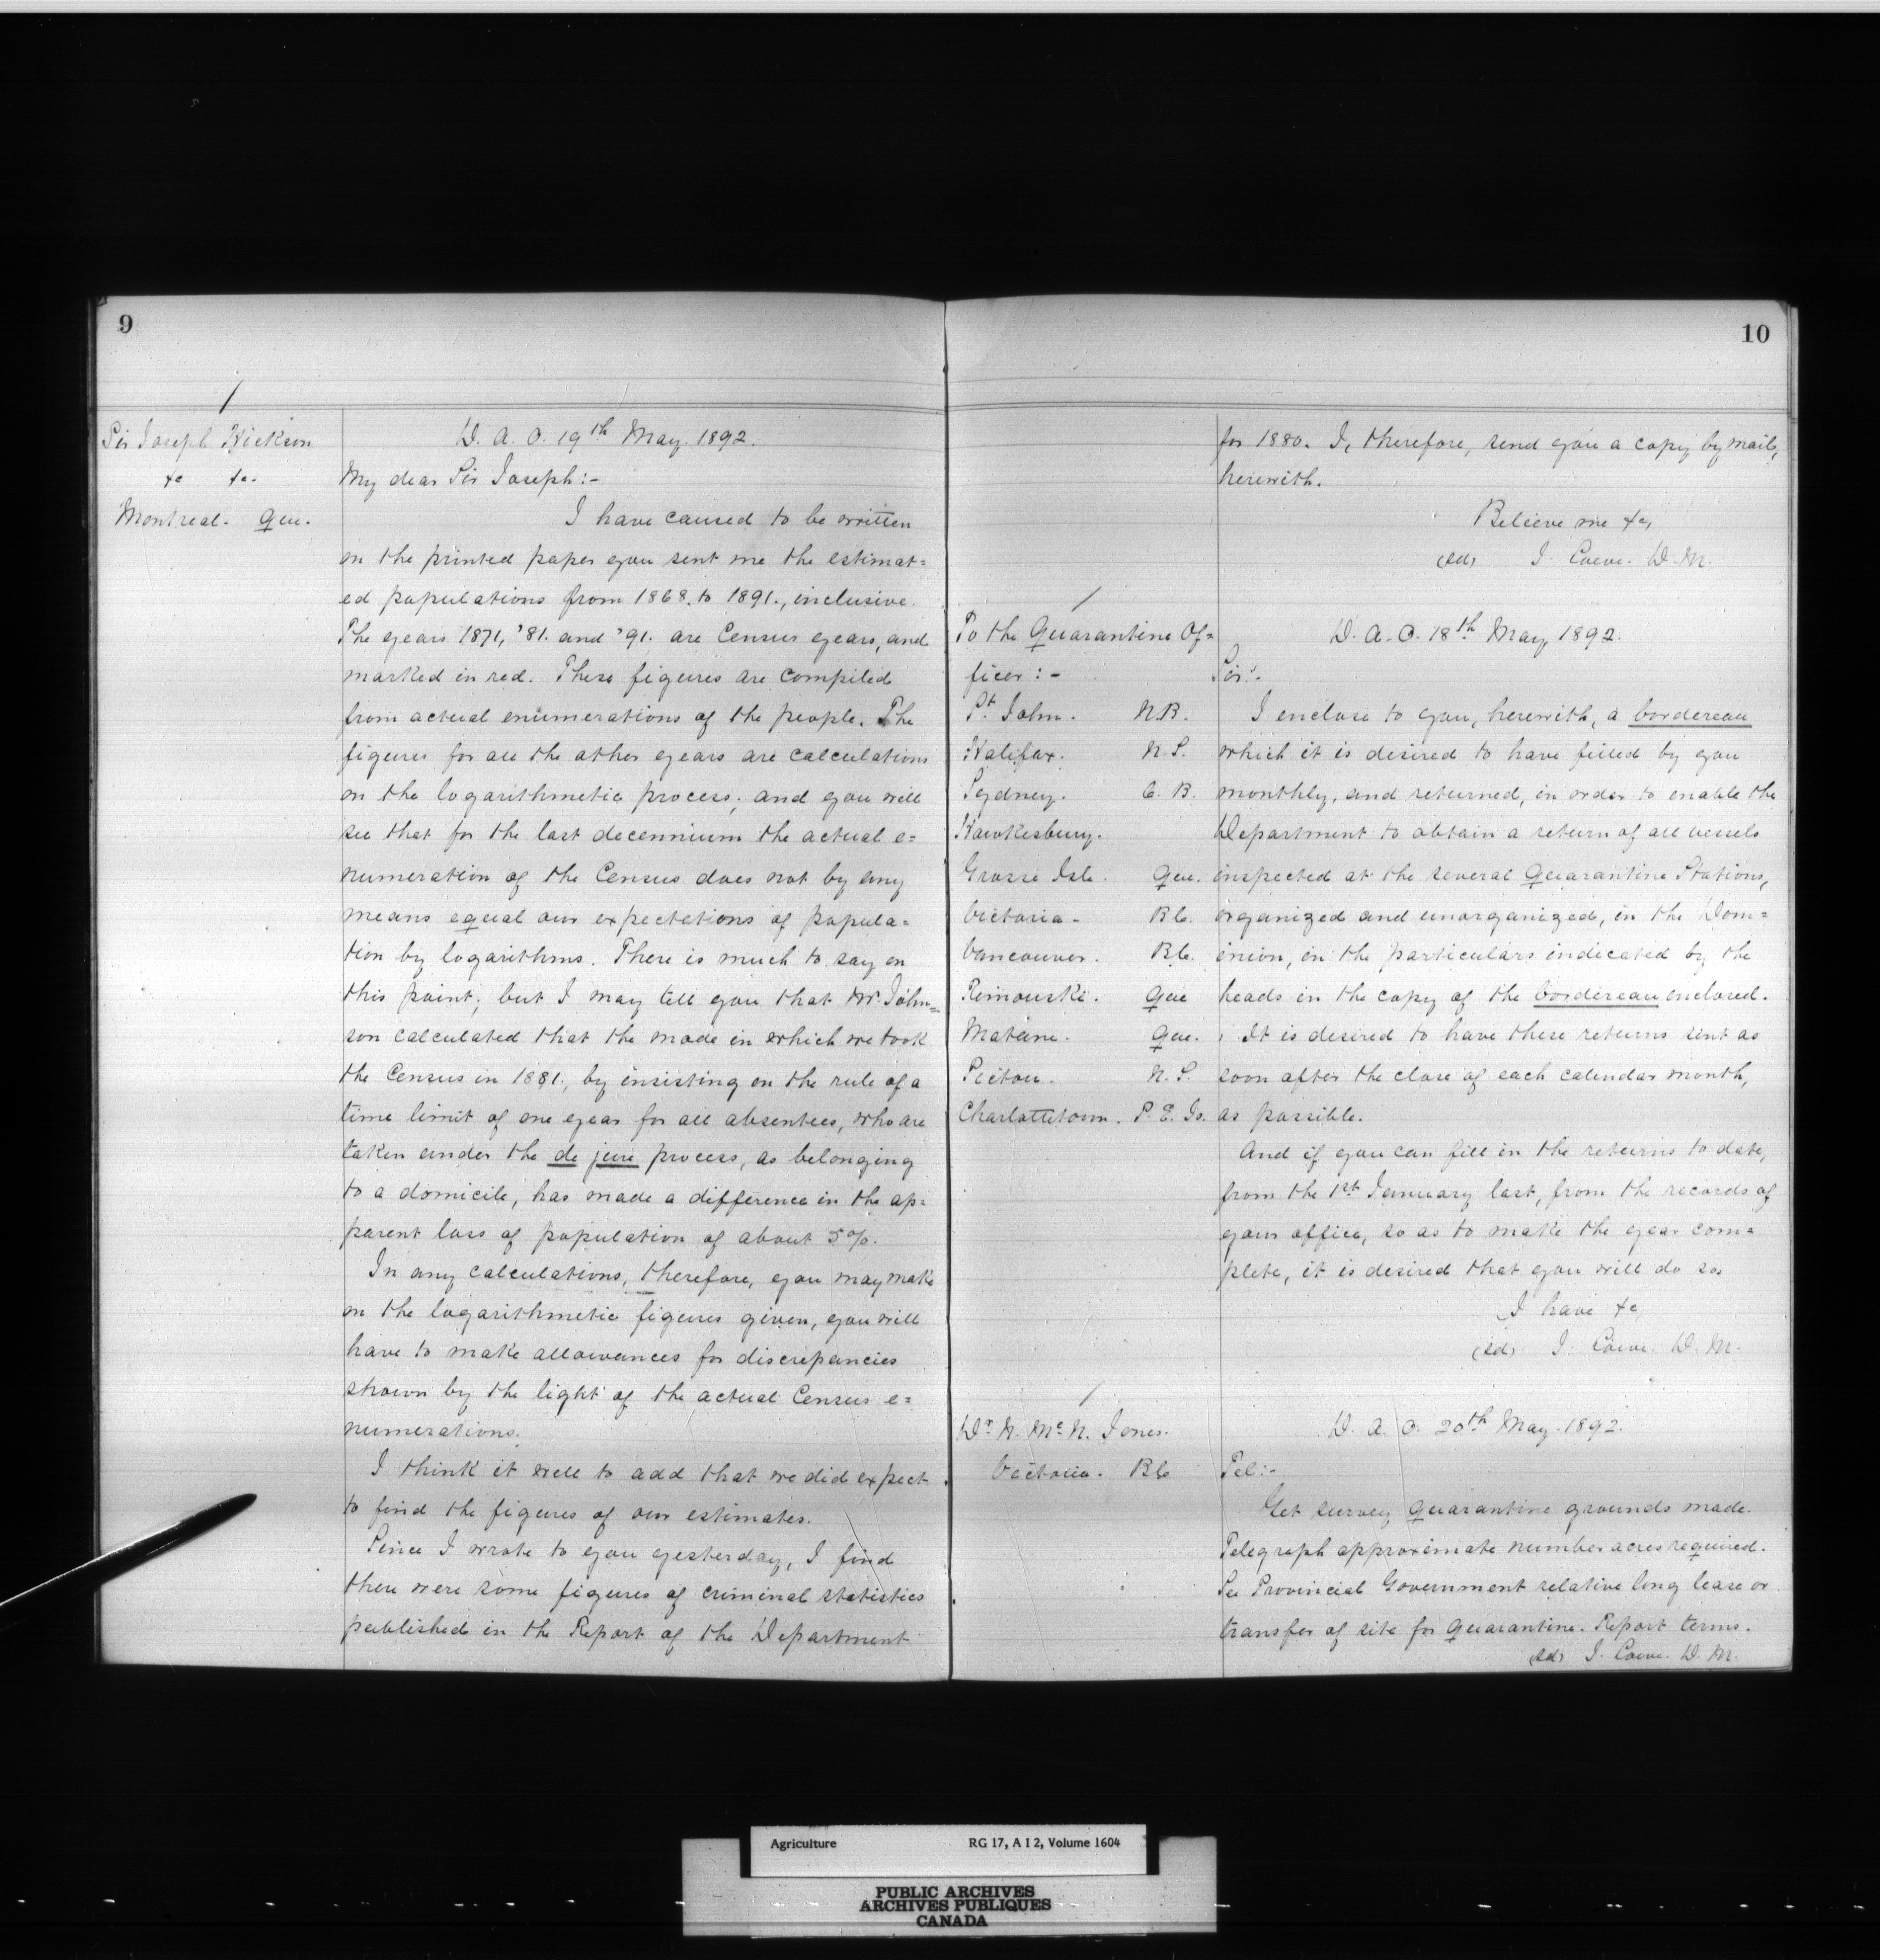 9
Sir Joseph Hickson
&c &c.
Montreal. Que.
D. A. O. 19th May. 1892.
My dear Sir Joseph:-
I have caused to be written
on the printed paper you sent me the estimat=
ed populations from 1868. to 1891., inclusive.
The years 1871, '81. and '91. are Census years, and
marked in red. These figures are compiled
from actual enumerations of the people. The
figures for all the other years are calculations
on the logarithmetic process; and you will
see that for the last decennium the actual e=
numeration of the Census does not by any
means equal our expectations of popula=
tion by logarithms. There is much to say on
this point; but I may tell you that Mr. John=
son calculated that the mode in which we took
the Census in 1881., by insisting on the rule of a
time limit of one year for all absentees, who are
taken under the de jure process, as belonging
to a domicile, has made a difference in the ap=
parent loss of population of about 5%.
In any calculations, therefore, you may make
on the logarithmetic figures given, you will
have to make allowances for discrepancies
shown by the light of the actual Census e=
numerations.
I think it well to add that we did expect
to find the figures of our estimates.
Since I wrote to you yesterday, I find
there were some figures of criminal statistics
published in the Report of the Department
10
for 1880. I, therefore, send you a copy by mail,
herewith.
Believe me &c,
(sd) J. Lowe. D. M.
To the Quarantine Of=
ficer:-
St. John. N.B.
Halifax. N. S.
Sydney. C. B.
Hawkesbury.
Grosse Isle. Que.
Victoria - B C.
Vancouver. B C.
Rimouski. Que
Matane. Que.
Pictou. N. S.
Charlottetown. P. E. Is.
D. A. O. 18th May, 1892.
Sir:-
I enclose to you, herewith, a bordereau
which it is desired to have filled by you
monthly, and returned, in order to enable the
Department to obtain a return of all vessels
inspected at the several Quarantine Stations,
organized and unorganized, in the Dom=
inion, in the particulars indicated by the
heads in the copy of the bordereau enclosed.
It is desired to have these returns sent as
soon after the close of each calendar month,
as possible.
And if you can fill in the returns to date,
from the 1st January last, from the records of
your office, so as to make the year com=
plete, it is desired that you will do so.
I have &c,
(sd) J. Lowe. D. M.
Dr. N. McN. Jones.
Victoria. B C
D. A. O. 20th May. 1892.
Tel:-
Get survey quarantine grounds made.
Telegraph approximate number acres required.
See Provincial Government relative long lease or
transfer of site for quarantine. Report terms.
(sd) J. Lowe. D. M.
Agriculture RG 17, A I 2, Volume 1604
PUBLIC ARCHIVES
ARCHIVES PUBLIQUES
CANADA